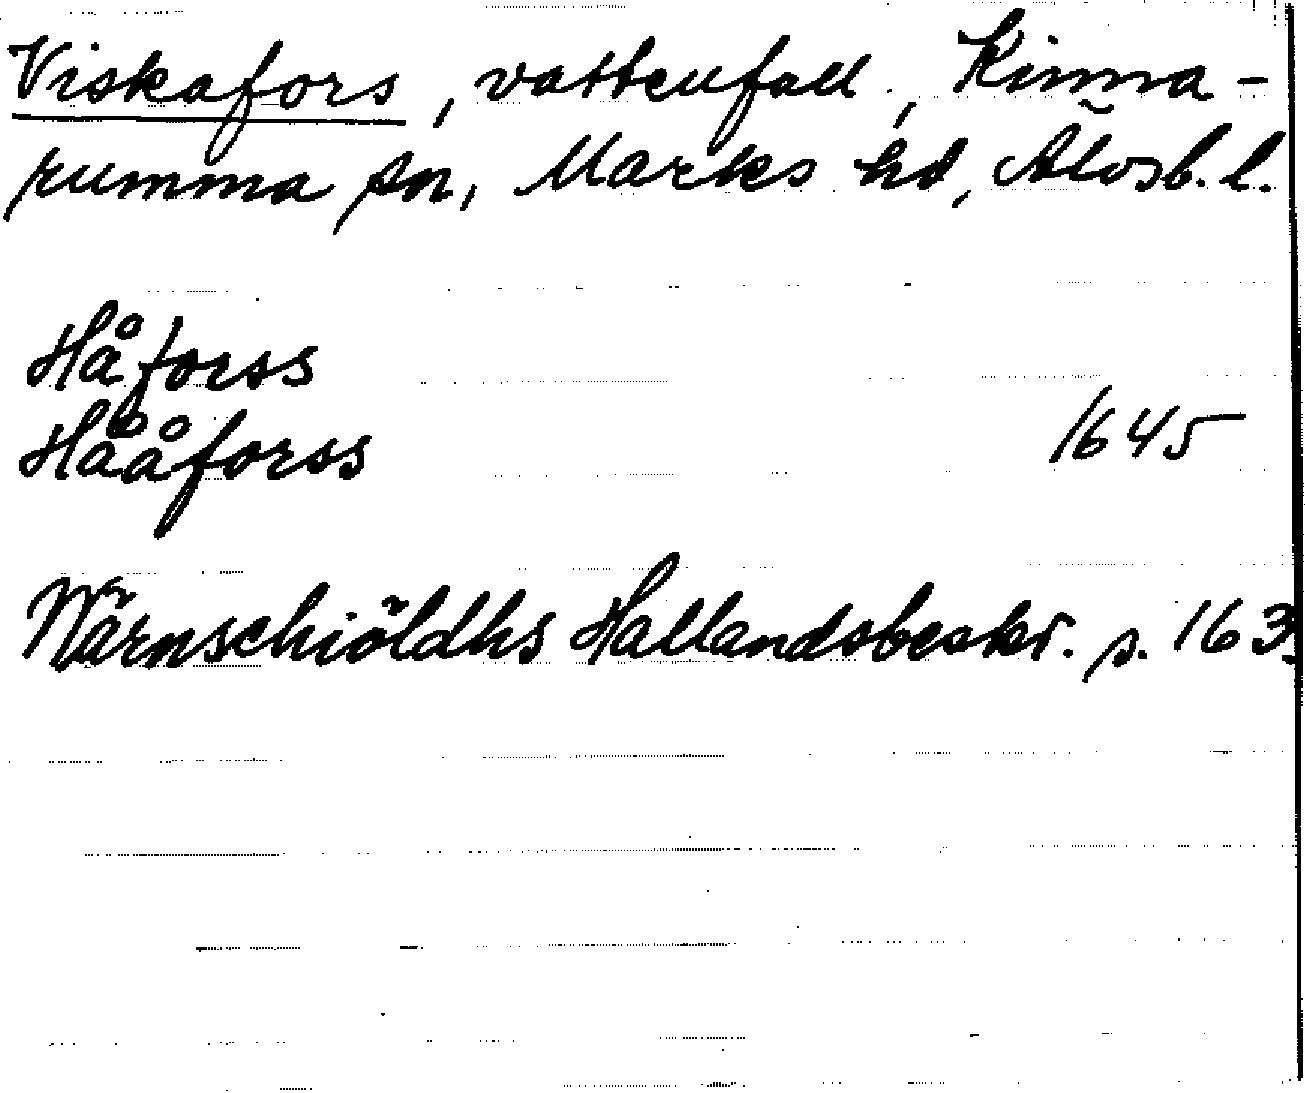 Viskafors, vattenfall, Kinna-
rumma sn, Marks hd, Älvsb. l.
Håforss
Hååforss 1645
Wärnschiöldhs Hallandsbeskr. s. 163.